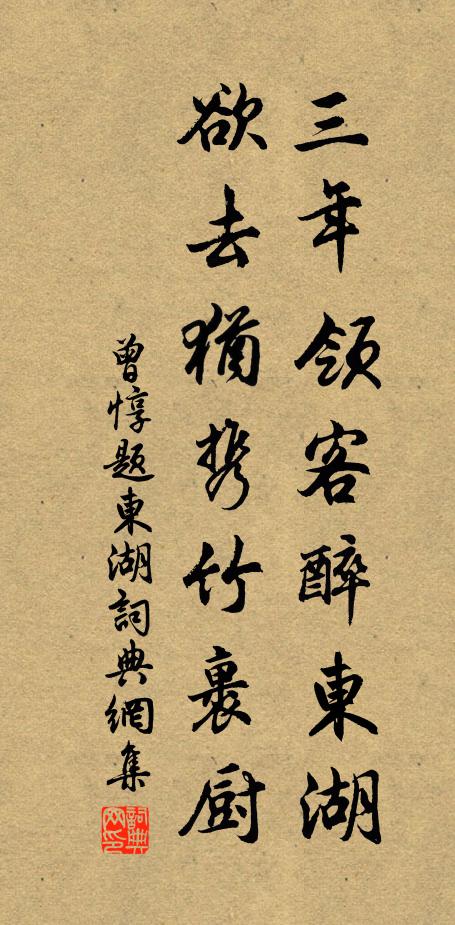 三年領客醉東湖
欲去猶携竹裏廚
曾惇題東湖詞典網集
詞典网印